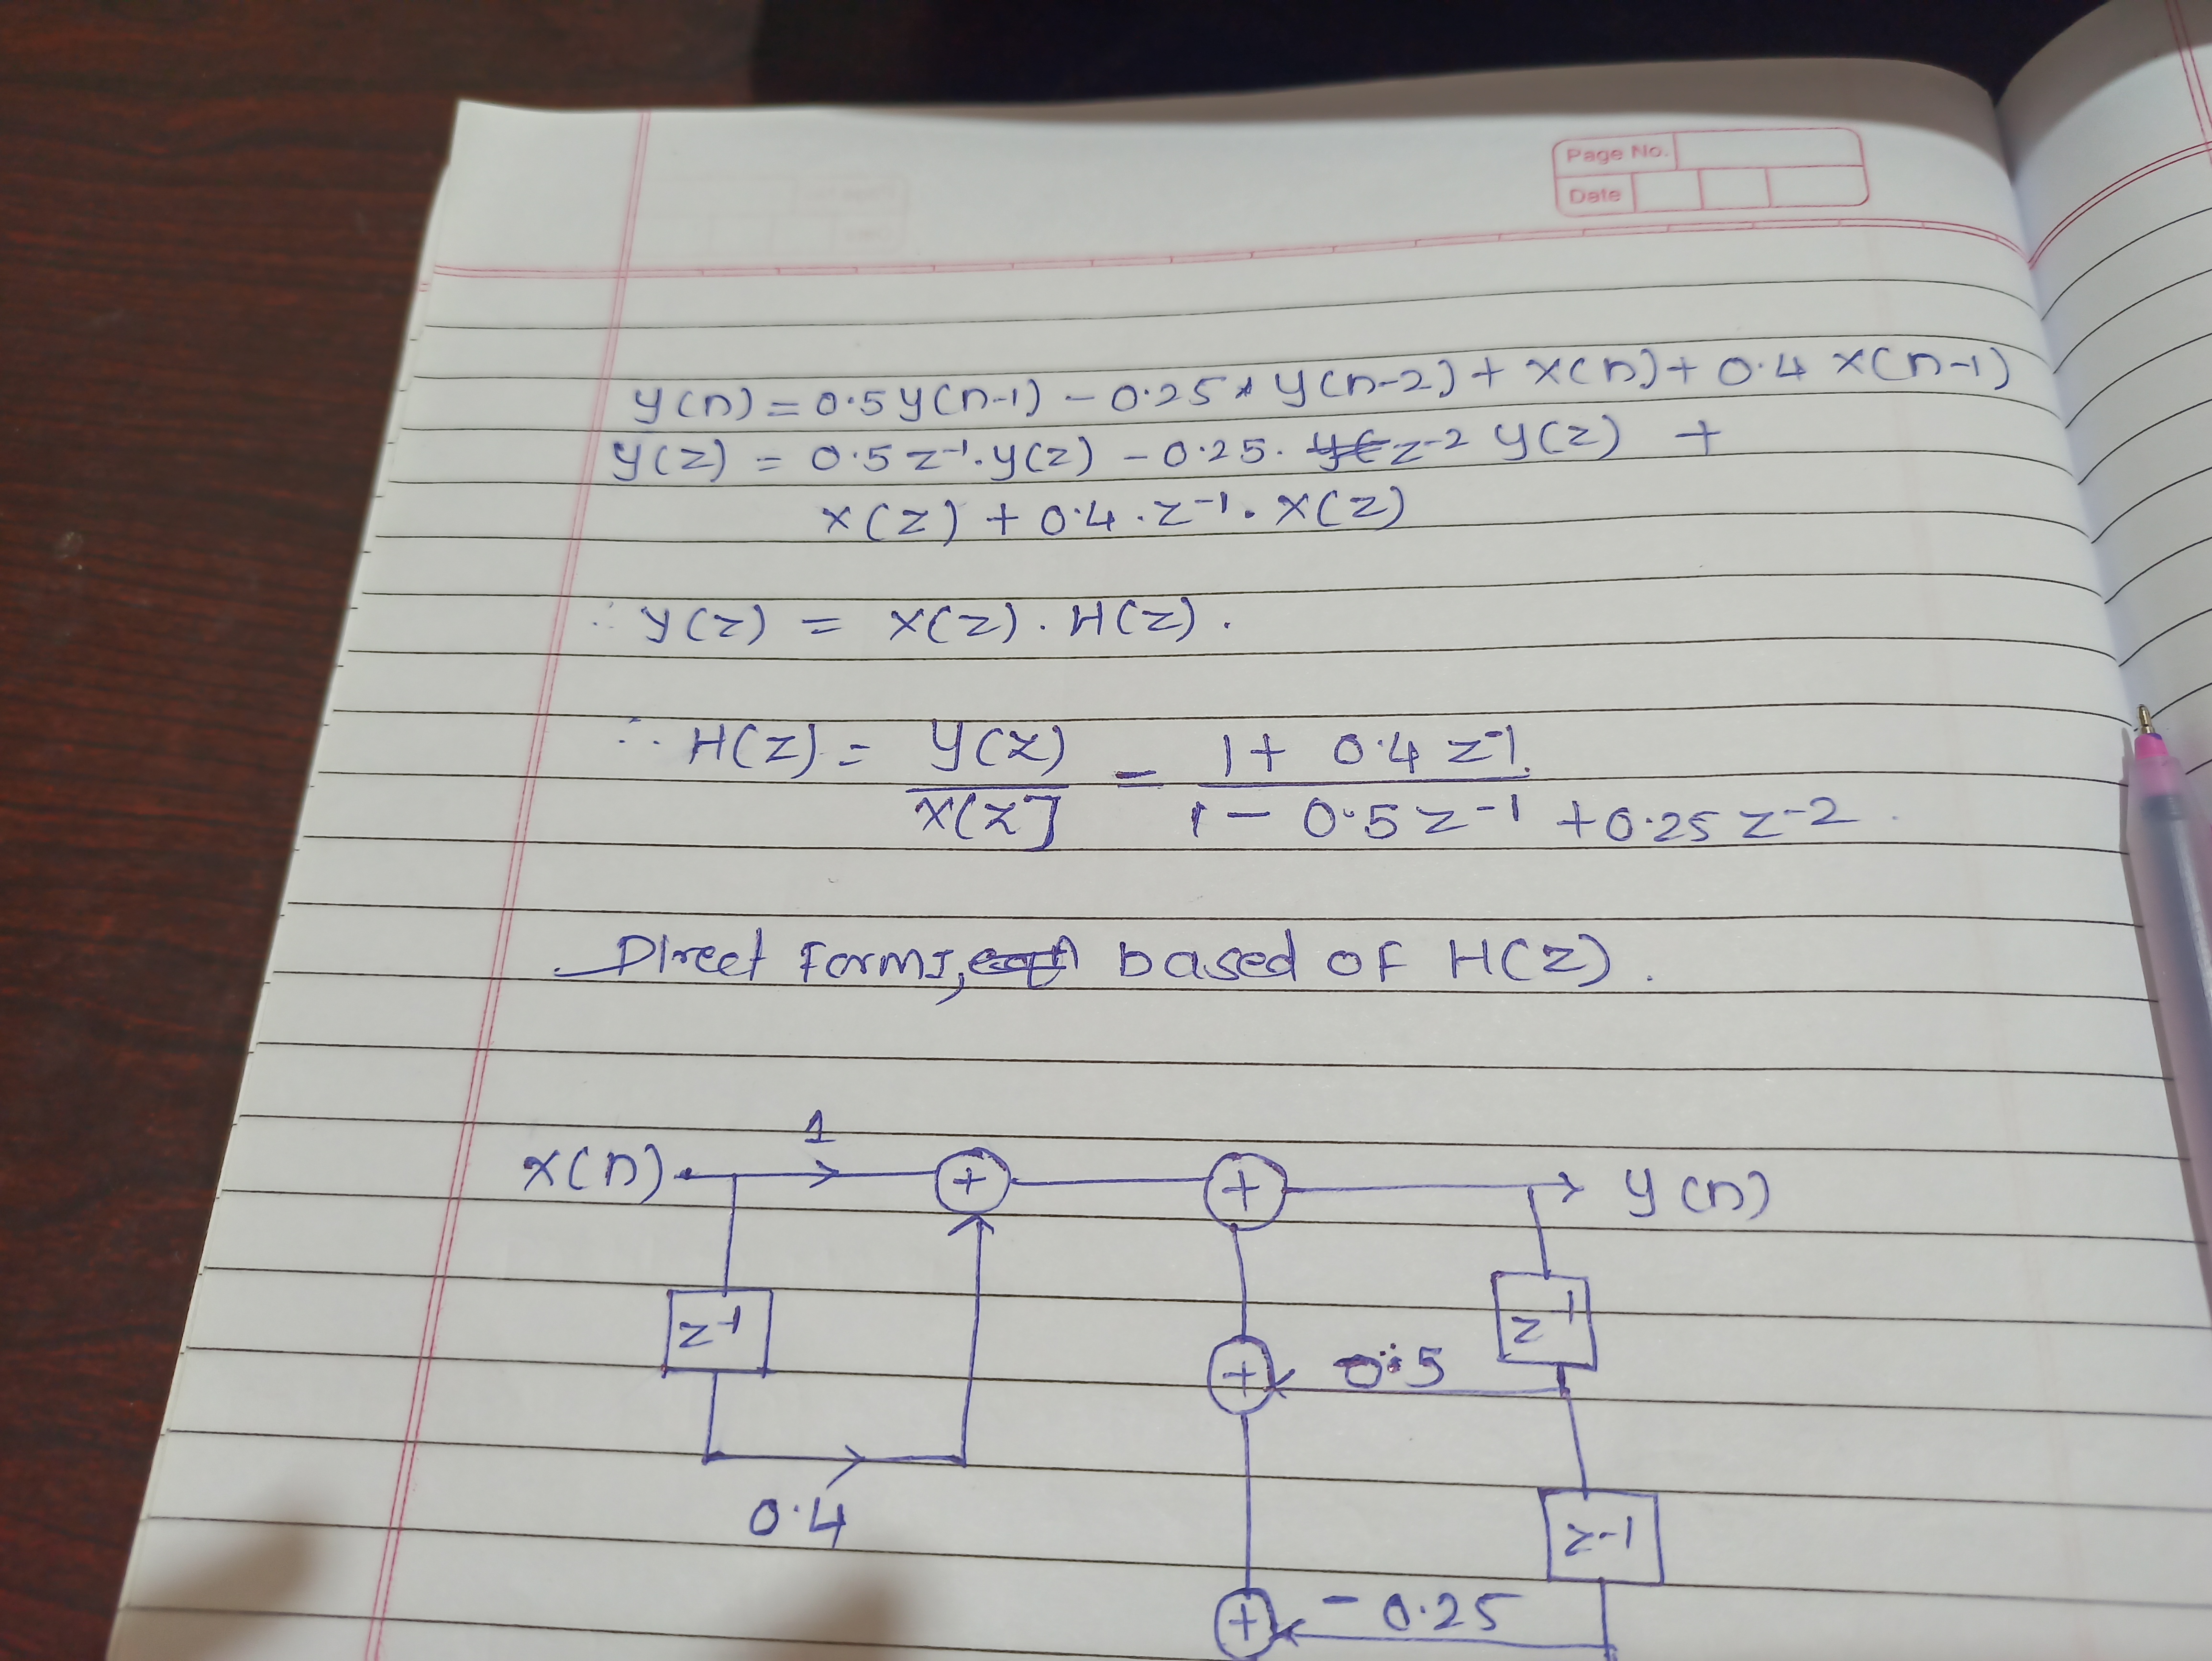 Page No.
Date
y(n) = 0.5y(n-1) - 0.25 * y(n-2) + x(n) + 0.4 x(n-1)
y(z) = 0.5 z⁻¹. y(z) - 0.25. z⁻² y(z) +
x(z) + 0.4 . z⁻¹. x(z)
∴ y(z) = x(z) . H(z) .
∴ H(z) = y(z) / x(z) = 1 + 0.4 z⁻¹ / 1 - 0.5 z⁻¹ + 0.25 z⁻²
Direct Form I, based of H(z).
1
x(n) + + y(n)
z⁻¹ z⁻¹
+ 0.5
0.4 z⁻¹
+ - 0.25